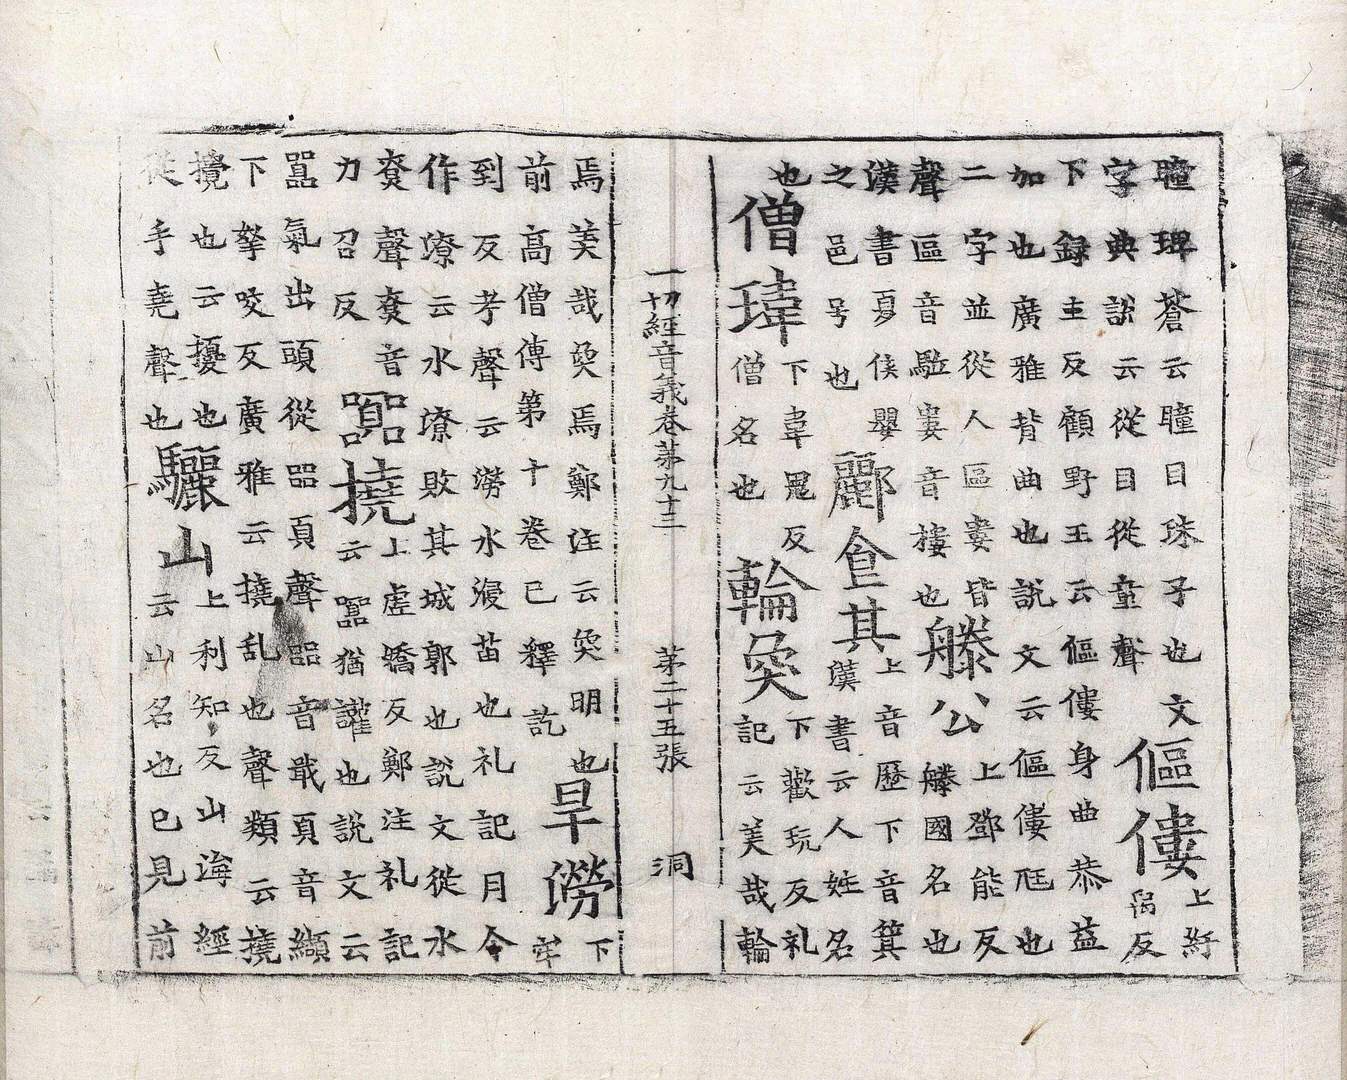 瞳睴蒼云瞳目珠子也文
字典說云從目從童聲
傴僂
上紆
禹反
下録主反顧野王云傴僂身曲恭益
加也廣雅背曲也說文云傴僂尫也
二字並從人區婁皆
聲區音駈婁音樓也
滕公
上鄧能反
滕國名也
漢書夏侯嬰
之邑号也
酈食其
上音歷下音箕
漢書云人姓名
也
僧瑋
下韋鬼反
僧名也
輪奐
下歡玩反礼
記云美哉輪
一切經音義卷第九十三 第二十五張 洞
焉美哉奐焉鄭注云奐明也
前高僧傳第十卷已釋訖
旱澇
下
牢
到反考聲云澇水浸苗也礼記月令
作潦云水潦敗其城郭也說文從水
尞聲尞音
力召反
囂撓
上虛嬌反鄭注礼記
云囂猶讙也說文云
囂氣出頭從㗊頁聲㗊音戢頁音纈
下拏咬反廣雅云撓乱也聲類云撓
攪也云擾也
從手堯聲也
驪山
上利知反山海經
云山名也已見前